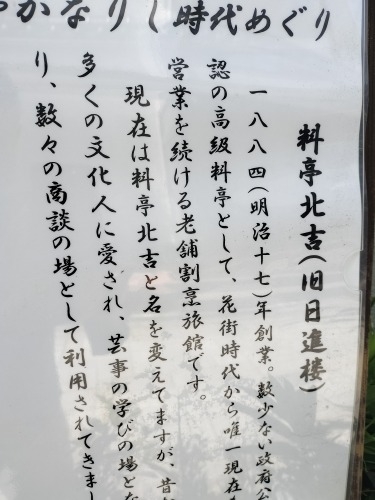 やかなりし時代めぐり
料亭北吉(旧日進楼)
一八八四(明治十七)年創業。数少ない政府公
認の高級料亭として、花街時代から唯一現在
営業を続ける老舗割烹旅館です。
現在は料亭北吉と名を変えてますが、昔
多くの文化人に愛され、芸事の学びの場とな
り、数々の商談の場として利用されてきまし